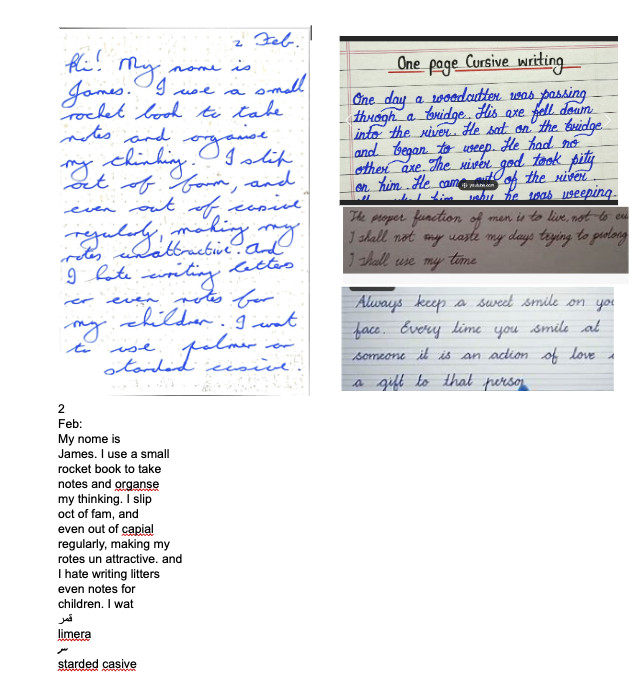 2 Feb.
Hi! My name is
James. I use a small
rocket book to take
notes and organise
my thinking. I slip
out of form, and
even out of cursive
regularly, making my
notes unattractive. And
I hate writing letters
or even notes for
my children. I wat
to use palmer or
standed cusive.
One page Cursive writing
One day a woodcutter was passing
throgh a bridge. His axe fell down
into the river. He sat on the bridge
and began to weep. He had no
other axe. The river god took pity
on him. He came out of the river
him why he was weeping.
The proper function of man is to live, not to
I shall not waste my days trying to prolong
I shall use my time
Always keep a sweet smile on you
face. Every time you smile at
someone it is an action of love
a gift to that person
2
Feb:
My name is
James. I use a small
rocket book to take
notes and organse
my thinking. I slip
oct of fam, and
even out of capial
regularly, making my
rotes un attractive. and
I hate writing litters
even notes for
children. I wat
قمر
limera
سر
starded casive